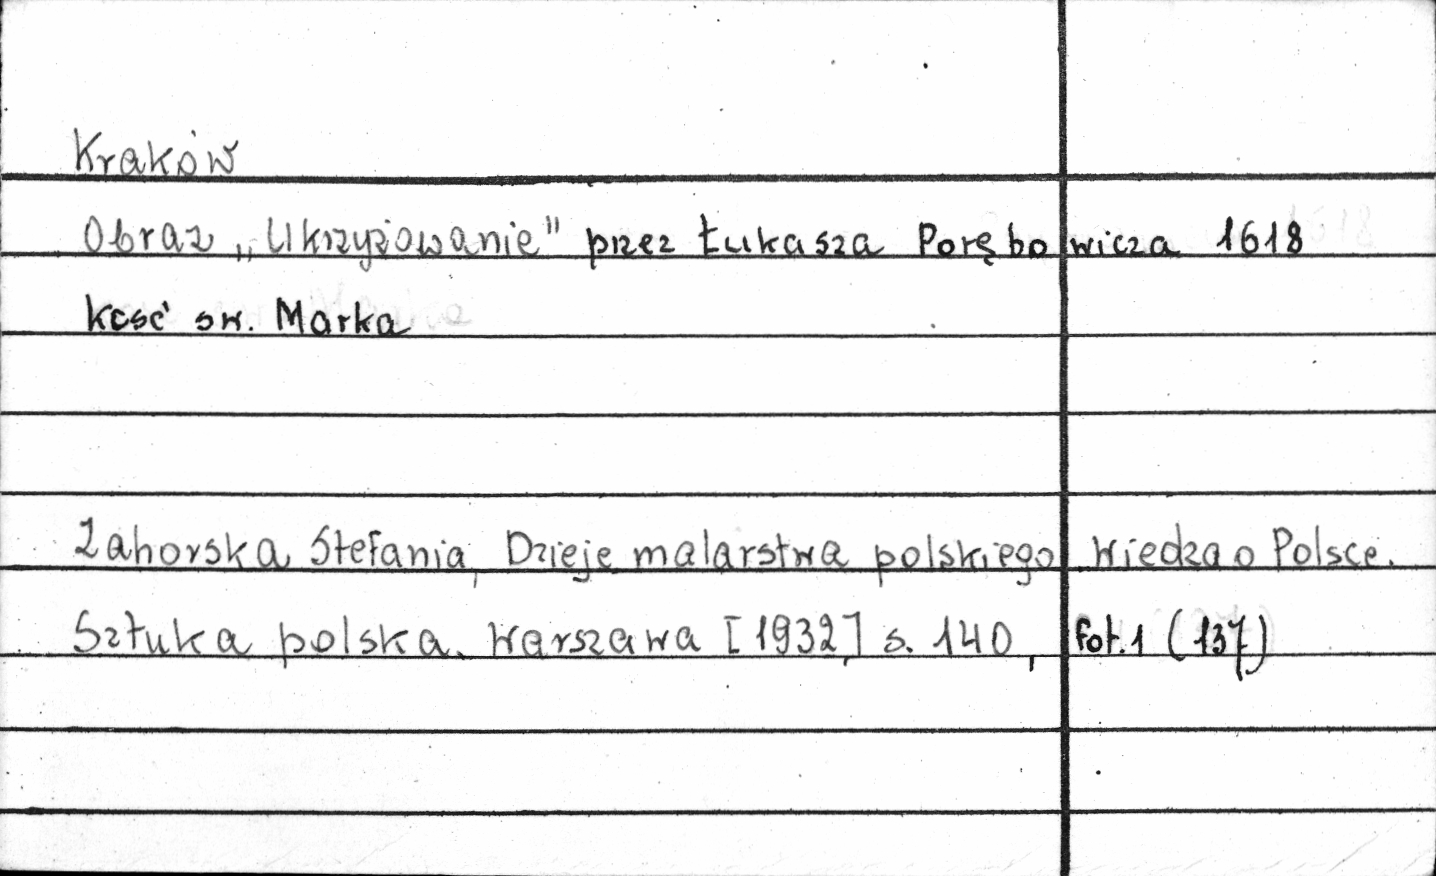 Kraków
Obraz „Ukrzyżowanie" przez Łukasza Porębowicza 1618
kość św. Marka
Zahorska Stefania, Dzieje malarstwa polskiego Wiedza o Polsce.
Sztuka polska. Warszawa [1932] s. 140, fot. 1 (137)